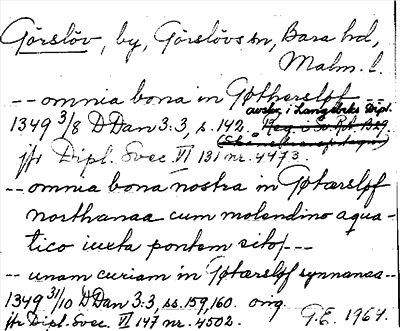 Görslöv, by, Görslövs sn, Bara hd,
Malm. l.
-- omnia bona in Gøthersløf
avskr. i Langebeks Dipl.
1349 3/8 DDan 3:3, s. 142.
jfr Dipl. Svec. VI 131 nr. 4473.
-- omnia bona nostra in Gøtærsløf
northanaa cum molendino aqua-
tico iuxta pontem sito/---
-- unam curiam in Gøtærsløf synnanaa--
1349 31/10 DDan 3:3, ss. 159, 160. orig.
jfr Dipl. Svec. VI 147 nr. 4502. G.E. 1964.